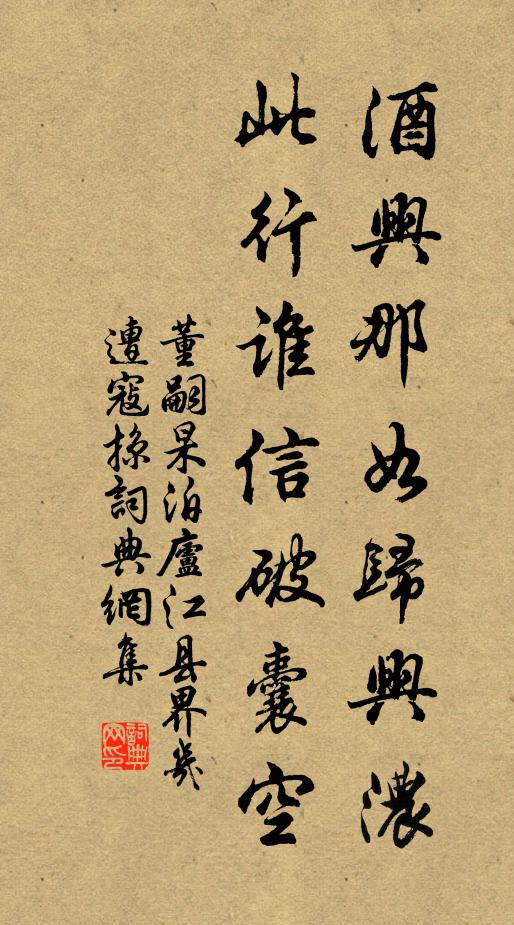 酒興那如歸興濃
此行誰信破囊空
董嗣杲泊廬江县界幾
遭寇掠詞典網集
詞典
网印